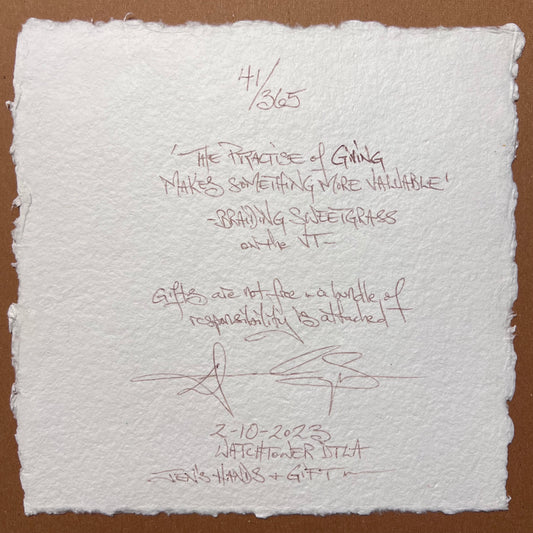 41/365
'THE PRACTISE of GIVING
MAKES SOMETHING MORE VALUABLE'
-BRAIDING SWEETGRASS
on the VT-
Gifts are not free - a bundle of
responsibility is attached
2-10-2023
WATCHTOWER DTLA
JEN'S HANDS + GIFT